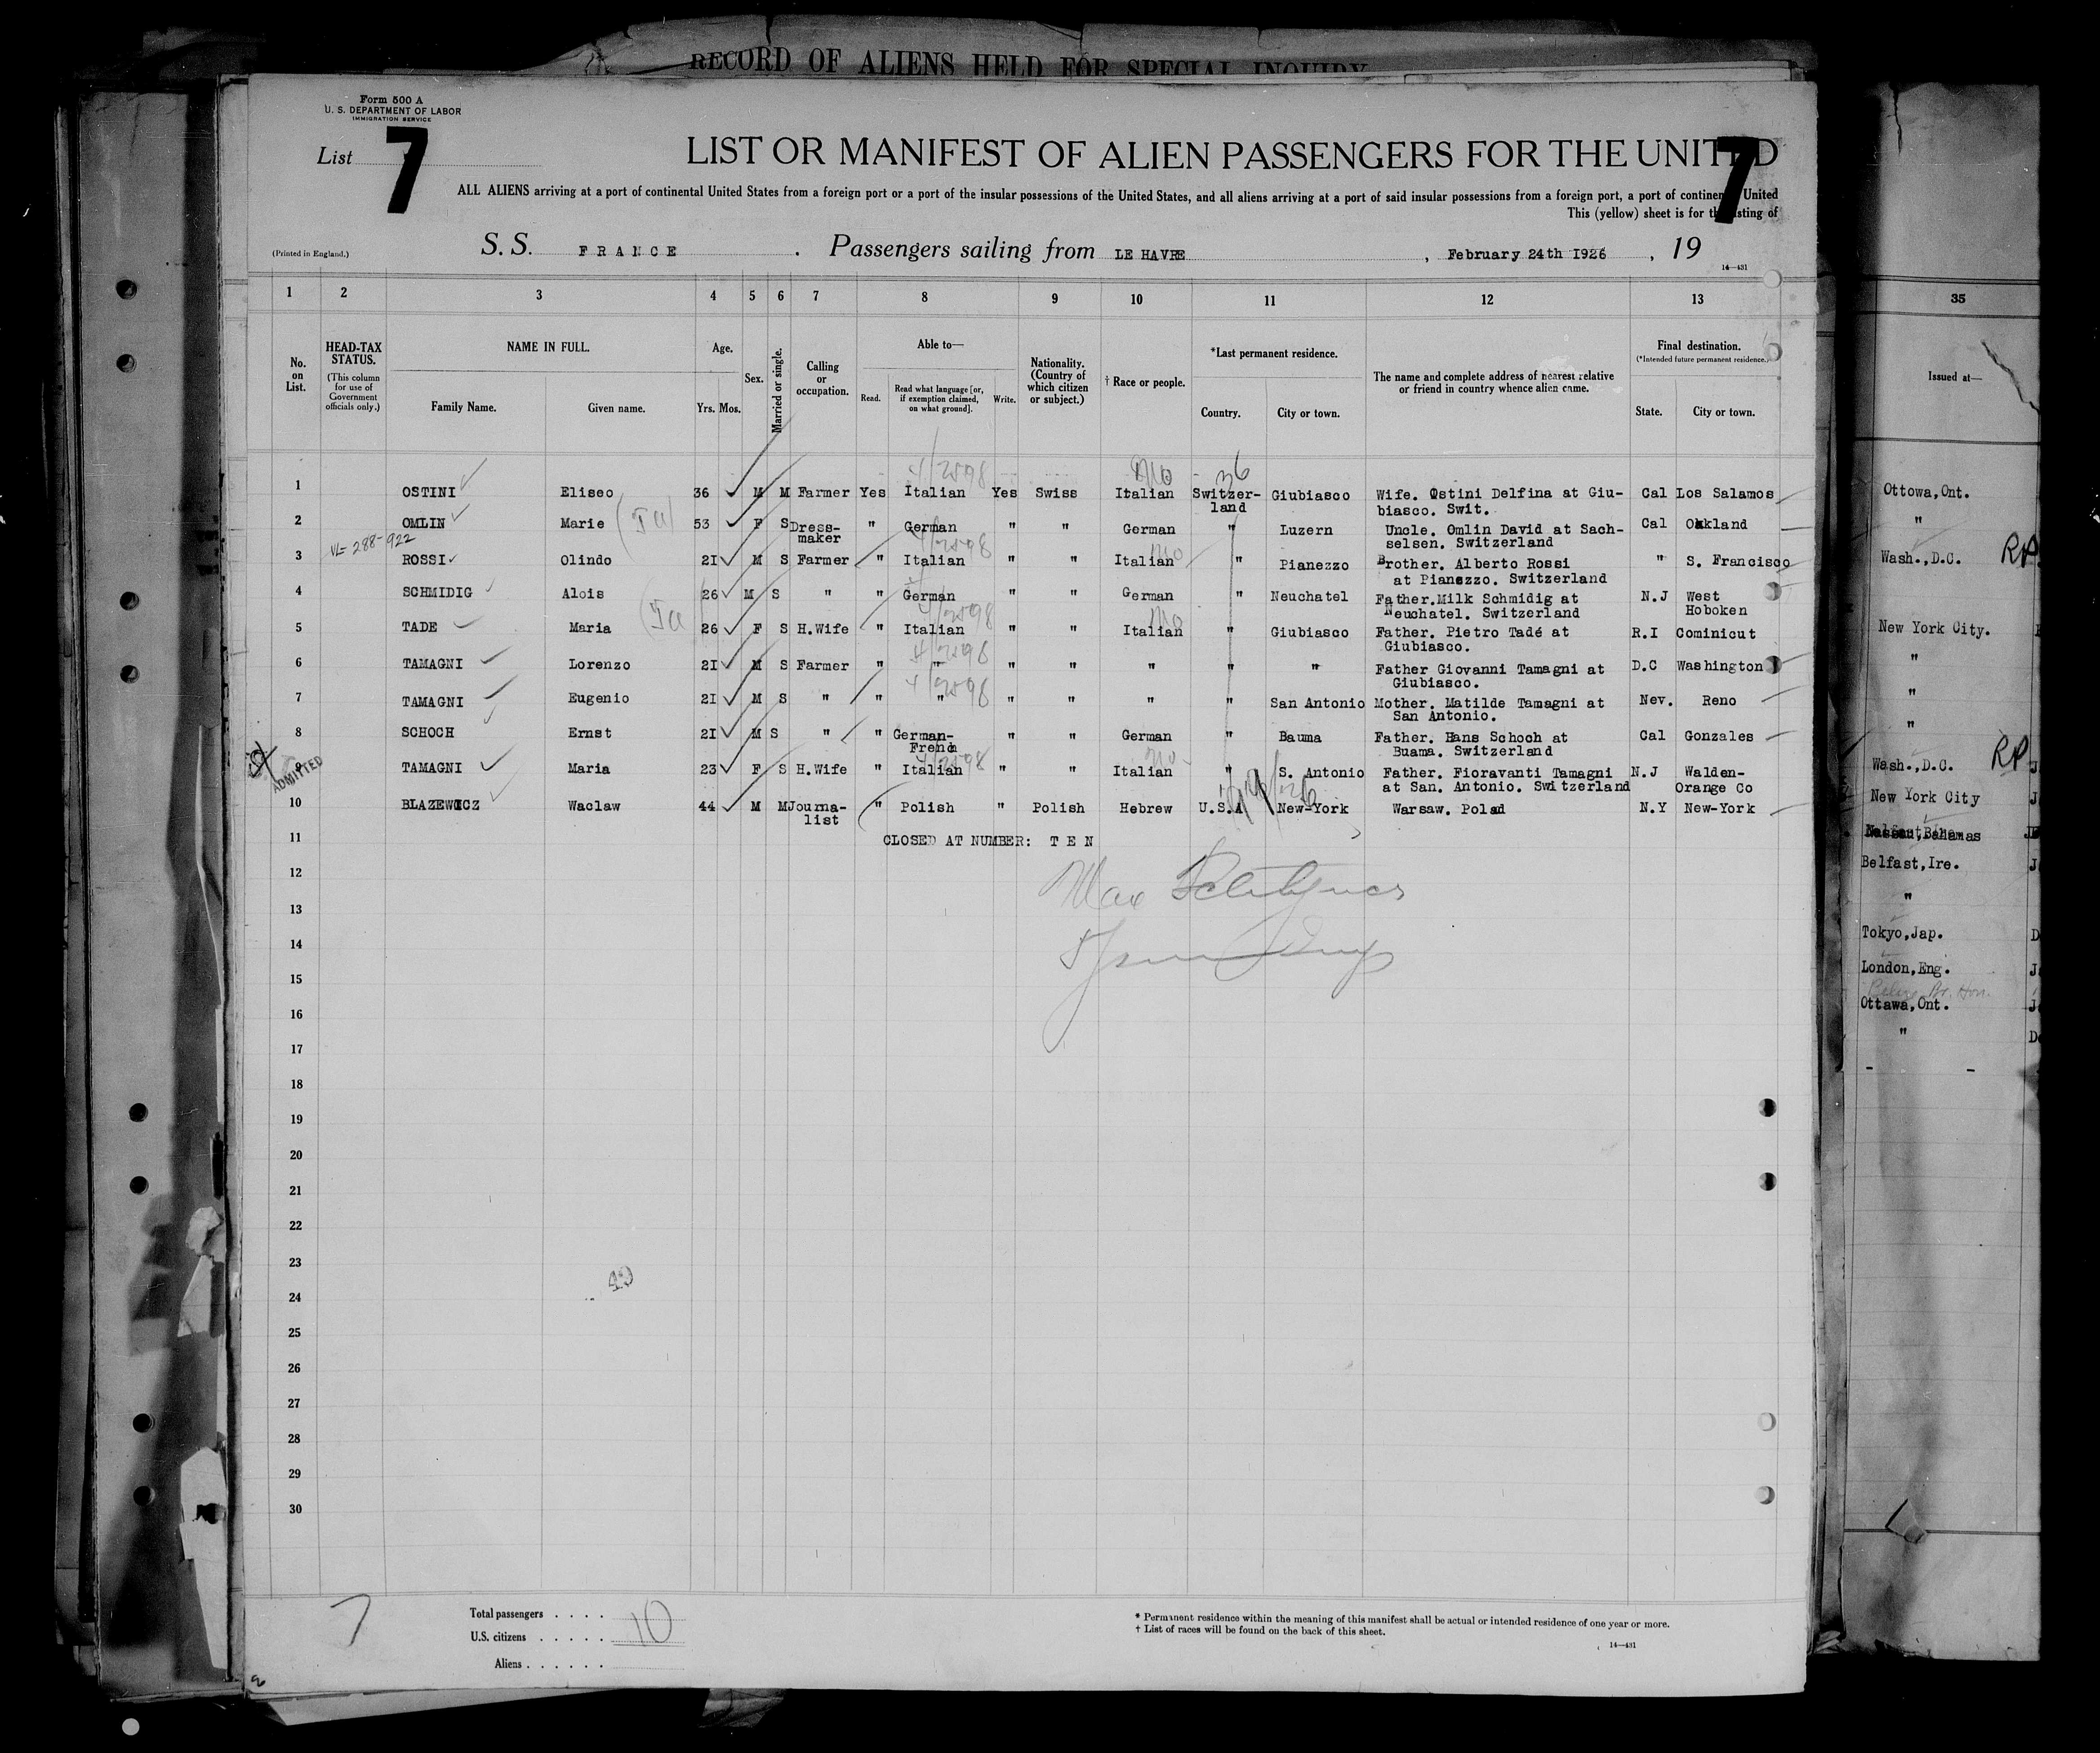 RECORD OF ALIENS HELD FOR SPECIAL INQUIRY
Form 500 A
U. S. DEPARTMENT OF LABOR
IMMIGRATION SERVICE
List 7
LIST OR MANIFEST OF ALIEN PASSENGERS FOR THE UNITED
7
ALL ALIENS arriving at a port of continental United States from a foreign port or a port of the insular possessions of the United States, and all aliens arriving at a port of said insular possessions from a foreign port, a port of continental United
This (yellow) sheet is for the listing of
(Printed in England.)
S. S. FRANCE . Passengers sailing from LE HAVRE , February 24th 1926 , 19
14—431
1 2 3 4 5 6 7 8 9 10 11 12 13
No. on List.
HEAD-TAX STATUS.
(This column for use of Government officials only.)
NAME IN FULL.
Family Name. Given name.
Age.
Yrs. Mos.
Sex.
Married or single.
Calling or occupation.
Able to—
Read.
Read what language [or, if exemption claimed, on what ground].
Write.
Nationality. (Country of which citizen or subject.)
† Race or people.
*Last permanent residence.
Country. City or town.
The name and complete address of nearest relative or friend in country whence alien came.
Final destination.
(*Intended future permanent residence.)
State. City or town.
1 OSTINI Eliseo 36 M M Farmer Yes Italian Yes Swiss Italian Switzer- Giubiasco Wife. Ostini Delfina at Giu- Cal Los Salamos
land biasco. Swit.
2 OMLIN Marie 53 F S Dress- " German " " German " Luzern Uncle. Omlin David at Sach- Cal Oakland
maker selsen. Switzerland
VL- 288-922
3 ROSSI Olindo 2I M S Farmer " Italian " " Italian " Pianezzo Brother. Alberto Rossi " S. Francisco
at Pianezzo. Switzerland
4 SCHMIDIG Alois 26 M S " " German " " German " Neuchatel Father.Milk Schmidig at N.J West
Neuchatel. Switzerland Hoboken
5 TADE Maria 26 F S H.Wife " Italian " " Italian " Giubiasco Father. Pietro Tadé at R.I Cominicut
Giubiasco.
6 TAMAGNI Lorenzo 2I M S Farmer " " " " " " " Father Giovanni Tamagni at D.C Washington
Giubiasco.
7 TAMAGNI Eugenio 2I M S " " " " " " " San Antonio Mother. Matilde Tamagni at Nev. Reno
San Antonio.
8 SCHOCH Ernst 2I M S " " German- " " German " Bauma Father. Hans Schoch at Cal Gonzales
Frend Buama. Switzerland
ADMITTED
9 TAMAGNI Maria 23 F S H.Wife " Italian " " Italian " S. Antonio Father. Fioravanti Tamagni N.J Walden-
at San. Antonio. Switzerland Orange Co
10 BLAZEWICZ Waclaw 44 M M Journa- " Polish " Polish Hebrew U.S.A New-York Warsaw. Polad N.Y New-York
list
11 CLOSED AT NUMBER: T E N
12
13
14
15
16
17
18
19
20
21
22
23
24
25
26
27
28
29
30
40
7
Total passengers . . . .
U.S. citizens . . . . . 10
Aliens . . . . . .
* Permanent residence within the meaning of this manifest shall be actual or intended residence of one year or more.
† List of races will be found on the back of this sheet.
14—431
35
Issued at—
Ottowa,Ont.
"
Wash.,D.C. RP
New York City.
"
"
"
Wash.,D.C. RP
New York City
Nassau,Bahamas
Belfast,Ire.
"
Tokyo,Jap.
London,Eng.
Ottawa,Ont.
"